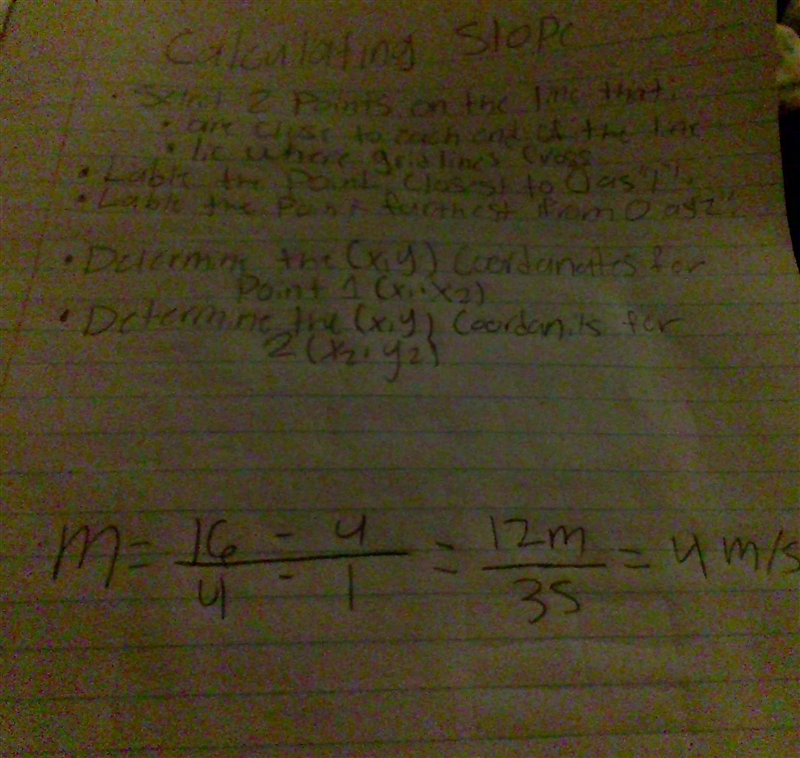 Calculating Slope
• Select 2 Points on the line that:
• are close to each end of the line
• lie where gridlines cross
• Lable the Point closest to 0 as "1".
• Lable the Point furthest from 0 as "2".
• Determine the (x,y) Coordanates for
Point 1 (x1, x2)
• Determine the (x,y) Coordanits for
2 (x2, y2)
m = 16 - 4 / 4 - 1 = 12m / 3s = 4 m/s